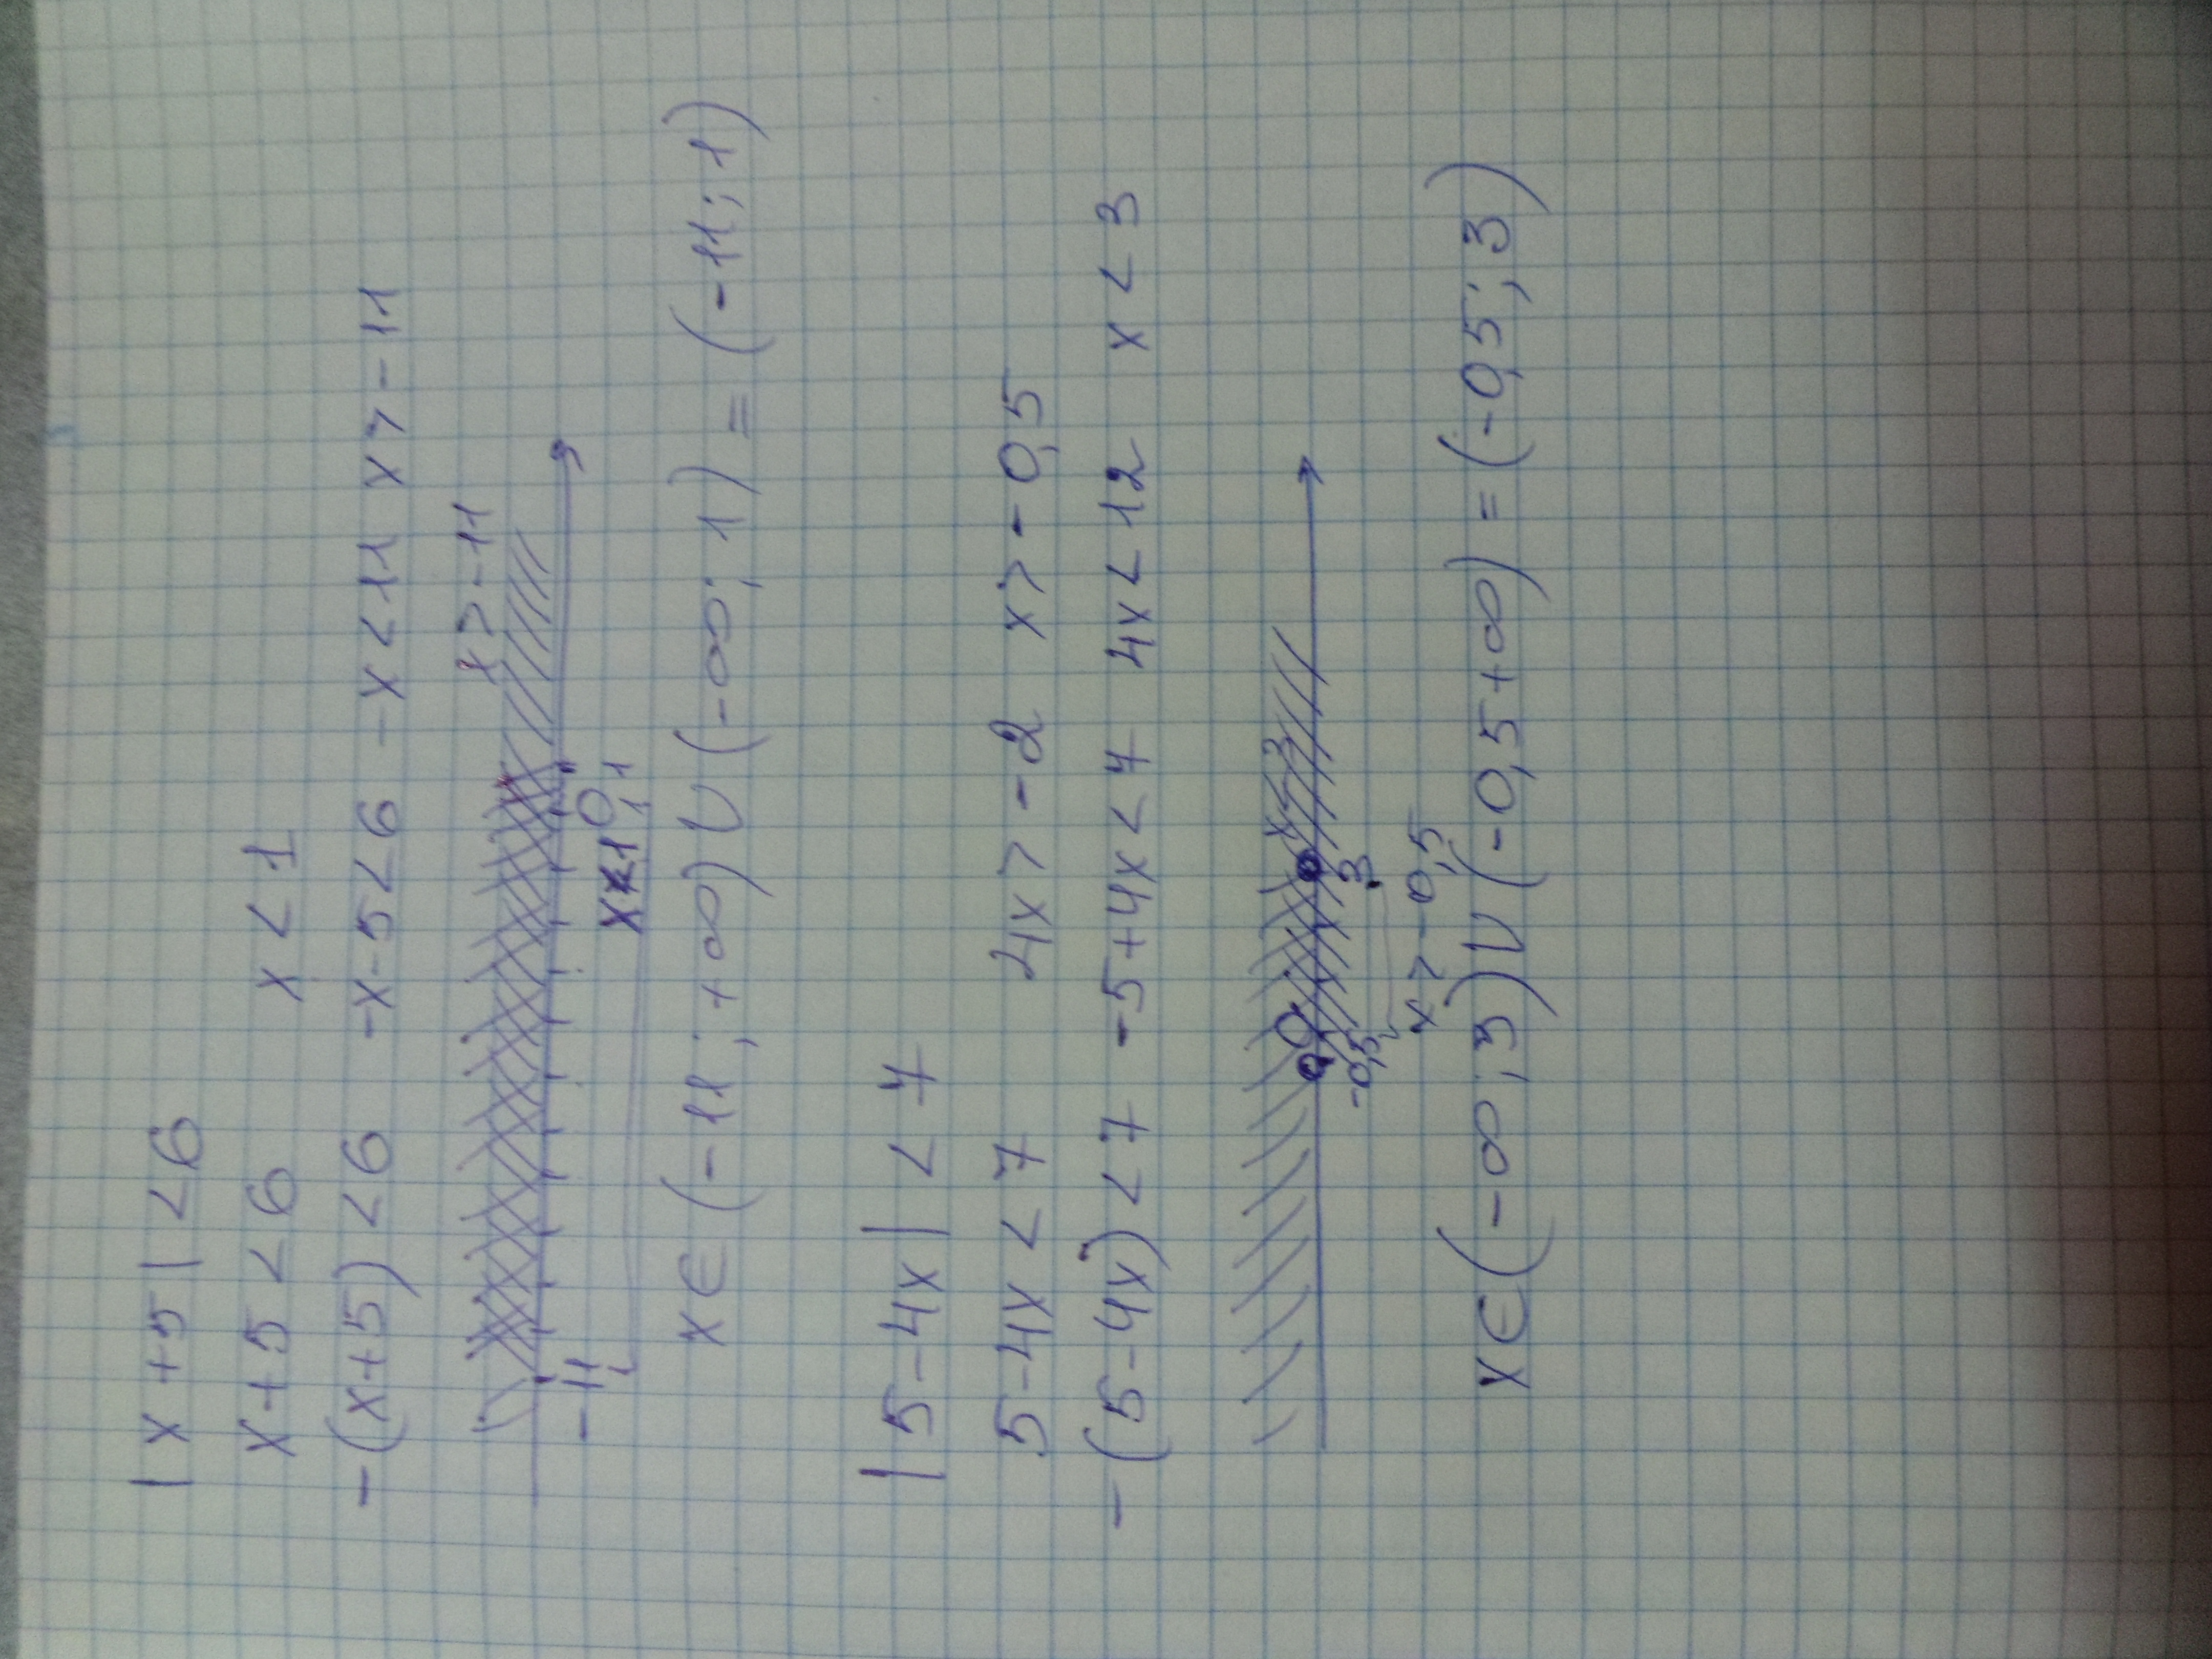 |x+5|<6
x+5<6 x<1
-(x+5)<6 -x-5<6 -x<11 x>-11
x>-11
-11 0 1
x<1
x∈(-11;+∞)U(-∞;1)=(-11;1)
|5-4x|<7
5-4x<7 4x>-2 x>-0,5
-(5-4x)<7 -5+4x<7 4x<12 x<3
0 x<3
-0,5 3
x>-0,5
x∈(-∞;3)U(-0,5+∞)=(-0,5;3)